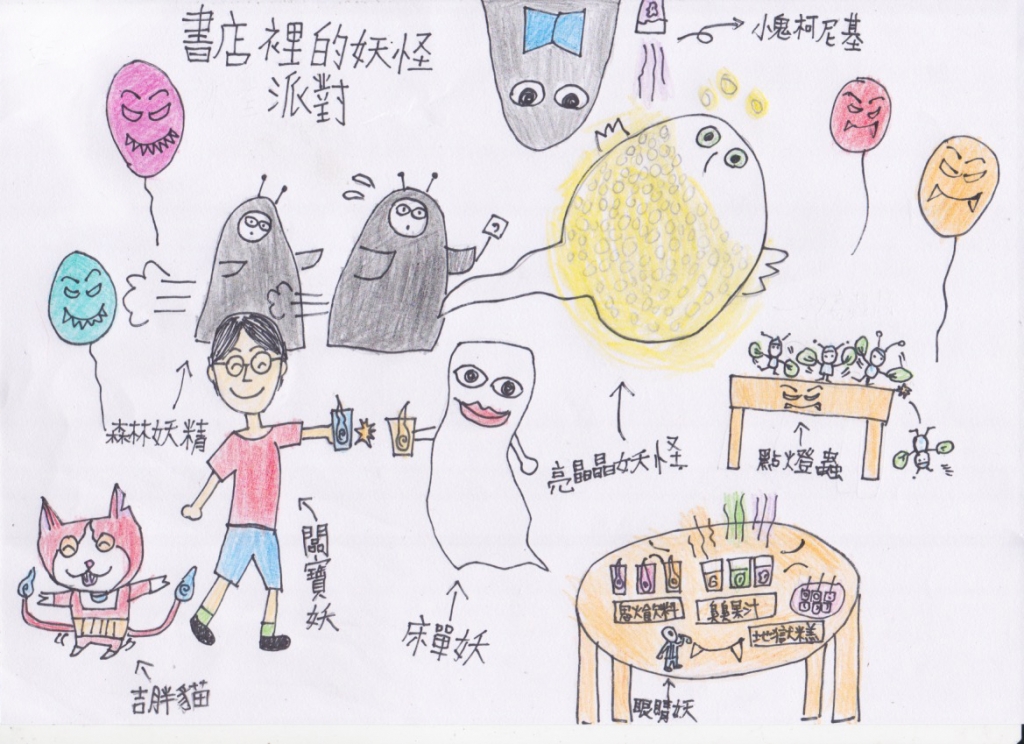 書店裡的妖怪
派對
小鬼柯尼基
森林妖精
亮晶晶妖怪
點燈蟲
寶妖
床單妖
飲料
臭臭果汁
地獄糕
吉胖貓
眼睛妖